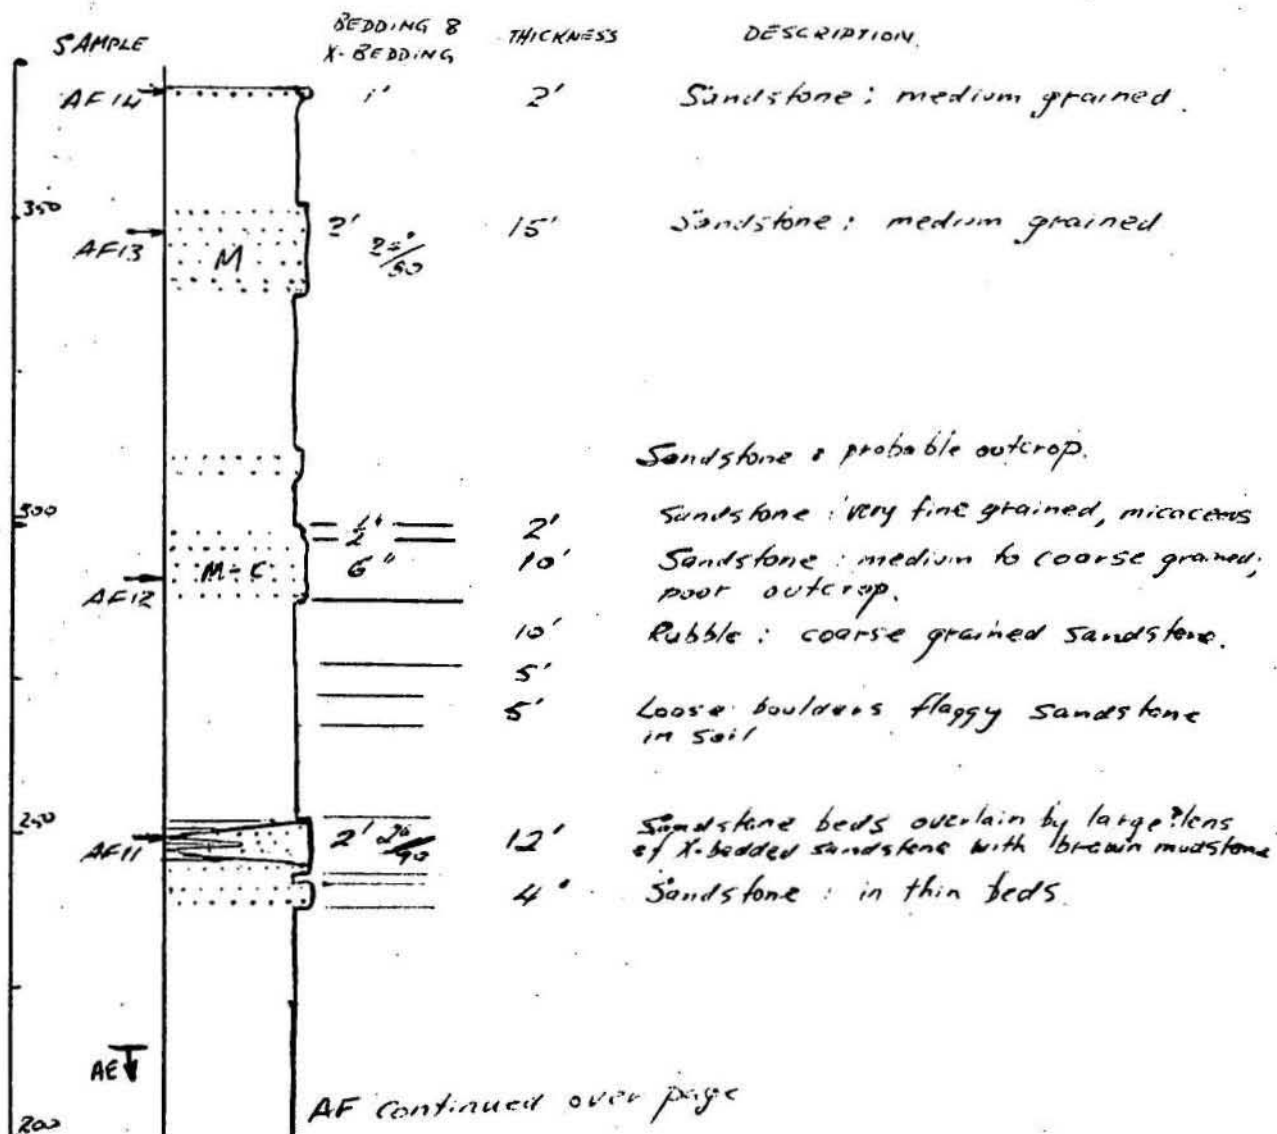 SAMPLE BEDDING & THICKNESS DESCRIPTION.
X-BEDDING
AF14 1' 2' Sandstone: medium grained.
350
AF13 M 2' 15' Sandstone: medium grained
Sandstone: probable outcrop.
300
½" 2' Sandstone: very fine grained, micaceous
AF12 M-C 6" 10' Sandstone: medium to coarse grained;
poor outcrop.
10' Rubble: coarse grained sandstone.
5'
5' Loose boulders flaggy sandstone
in soil
250
AF11 2' 12' Sandstone beds overlain by large ?lens
of X-bedded sandstone with brown mudstone
4' Sandstone: in thin beds.
AE
AF continued over page
200